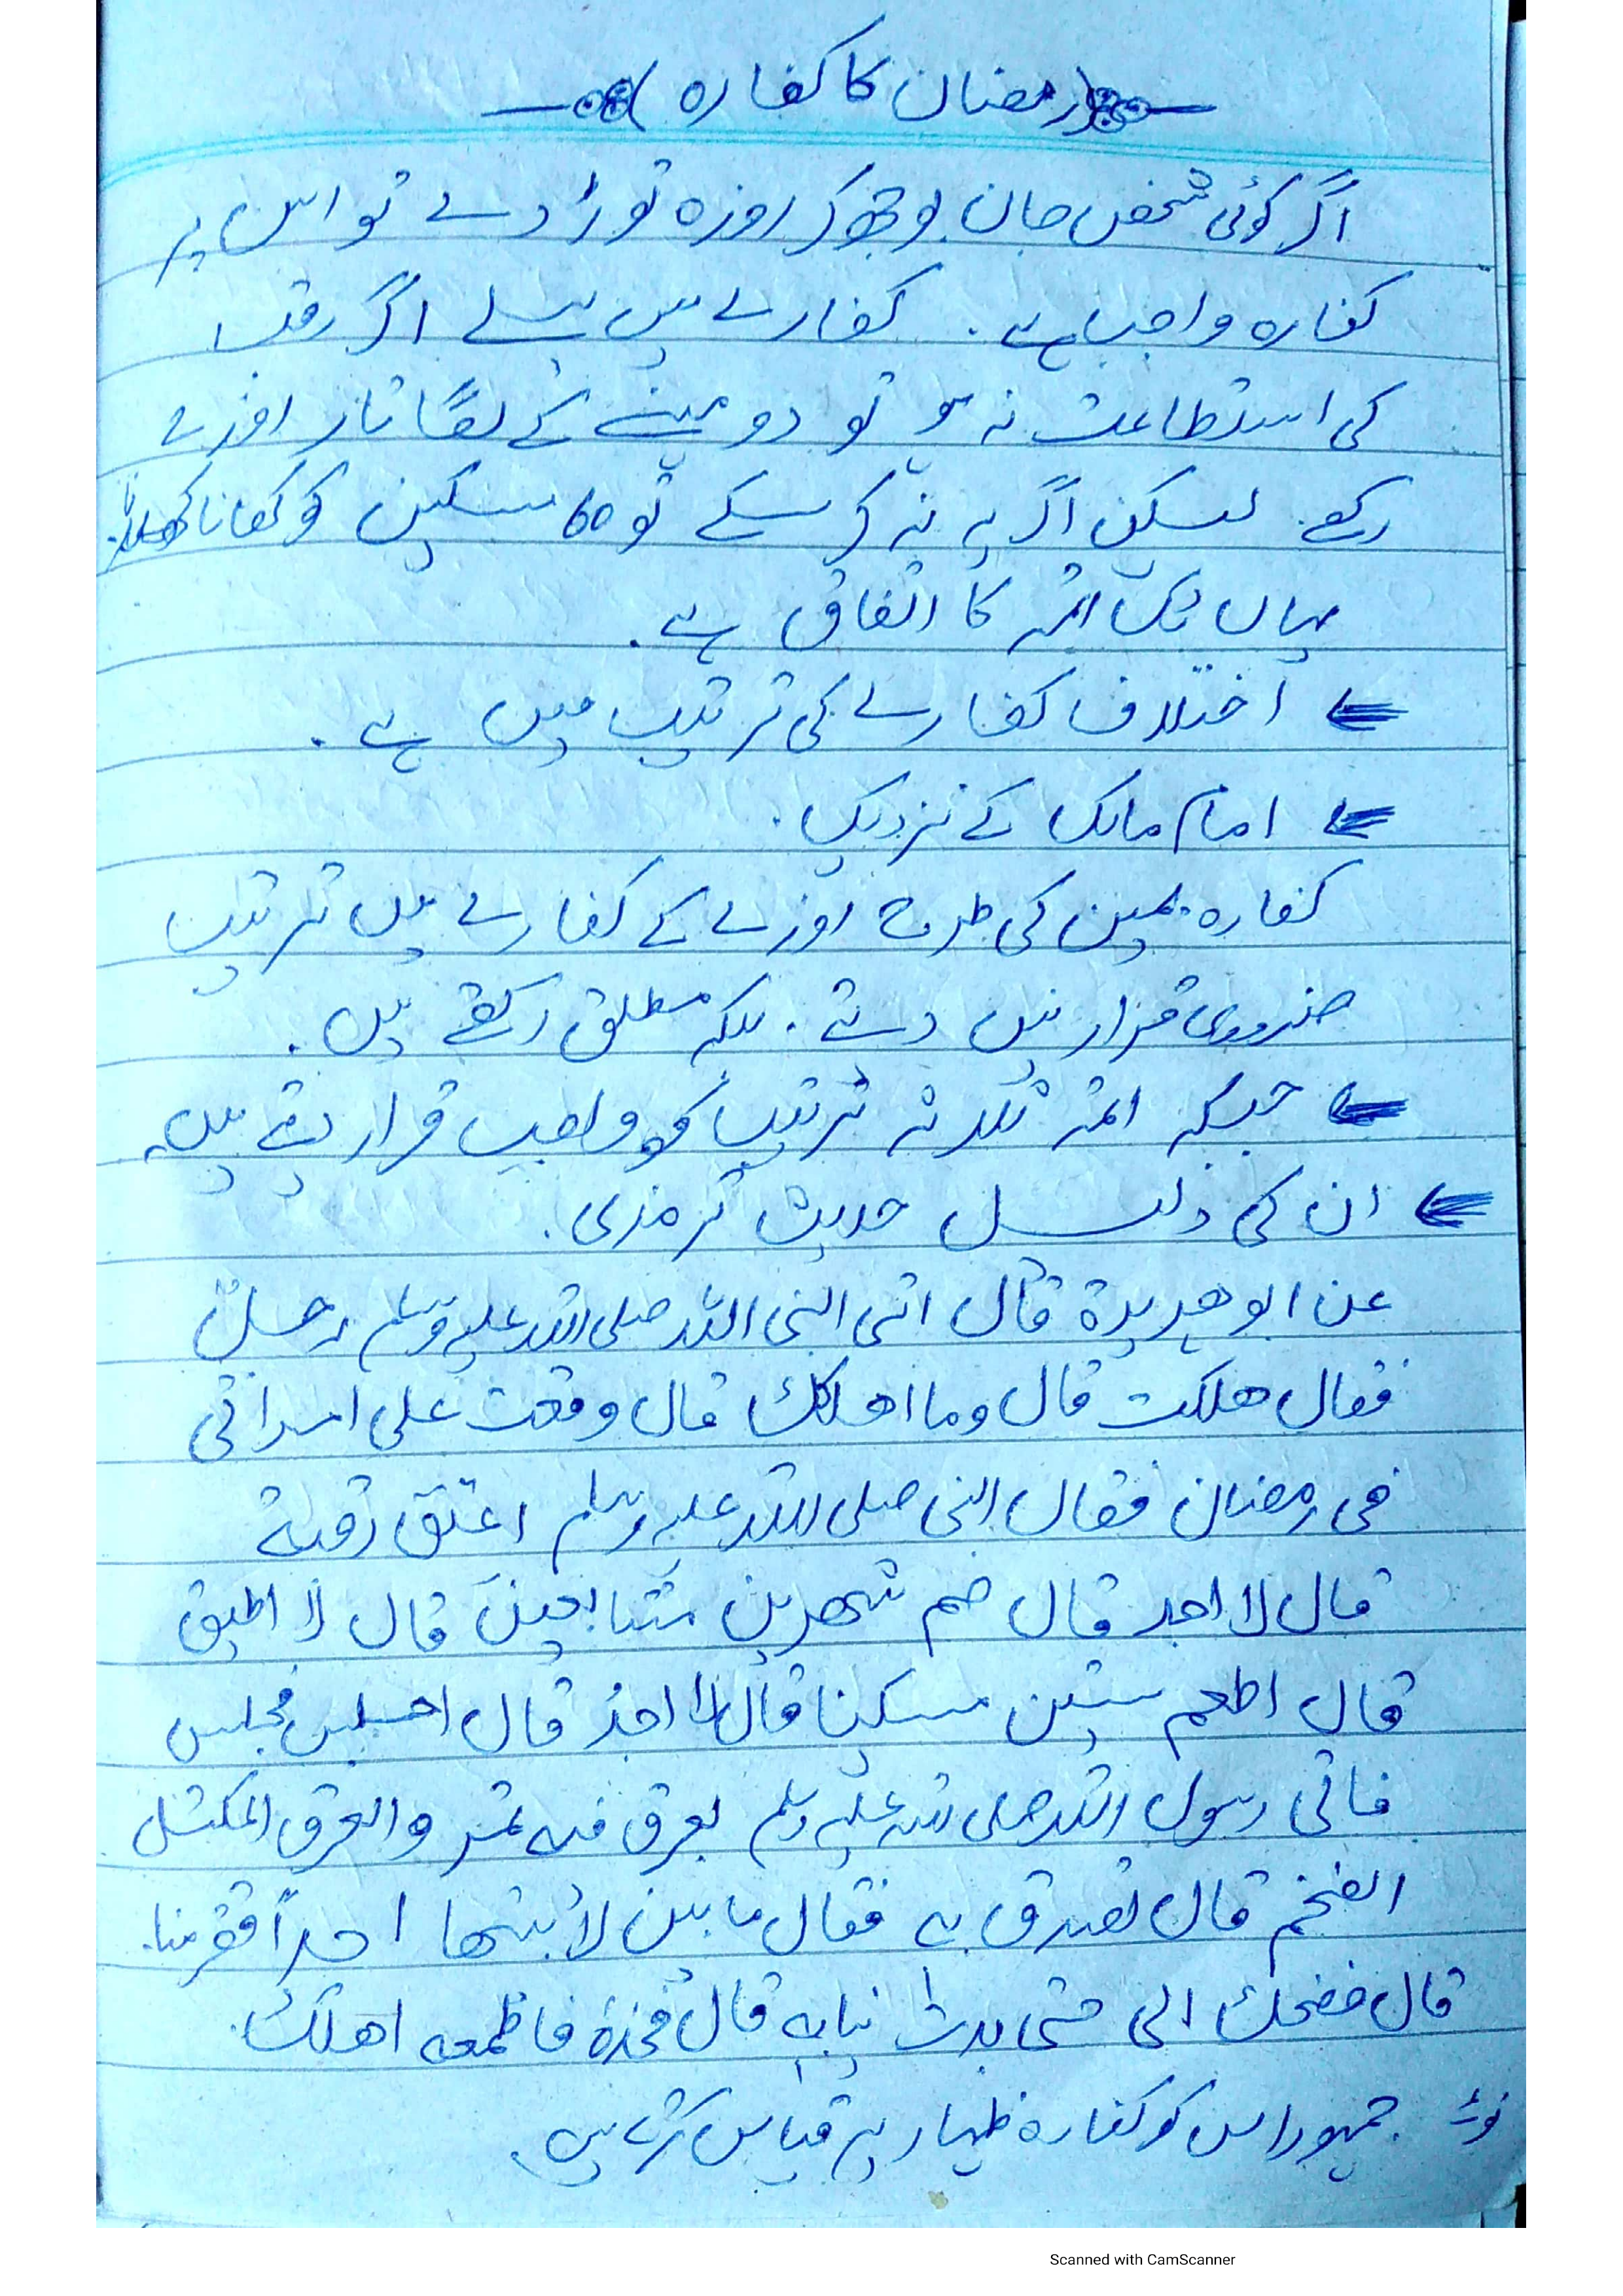 رمضان کا کفارہ
اگر کوئی شخص جان بوجھ کر روزہ توڑ دے تو اس پر
کفارہ واجب ہے۔ کفارے میں پہلے اگر رقبہ
کی استطاعت نہ ہو تو دو مہینے کے لگاتار روزے
رکھے۔ لیکن اگر یہ نہ کر سکے تو 60 مسکین کو کھانا کھلائے۔
یہاں تک ائمہ کا اتفاق ہے۔
اختلاف کفارے کی ترتیب میں ہے۔
امام مالک کے نزدیک۔
کفارہ یمین کی طرح روزے کے کفارے میں ترتیب
ضروری قرار نہیں دیتے۔ بلکہ مطلق رکھتے ہیں۔
جبکہ ائمہ ثلاثہ ترتیب کو واجب قرار دیتے ہیں۔
ان کی دلیل حدیث ترمذی۔
عن ابو هريرة قال اتى النبى اللہ صلى اللہ عليه وسلم رجلٌ
فقال هلكت قال وما اهلكك قال وقعت على امراتى
فى رمضان فقال النبى صلى اللہ عليه وسلم اعتق رقبة
قال لا اجد قال صم شهرين متتابعين قال لا اطيق
قال اطعم ستين مسكينا قال لا اجد قال اجلس فجلس
فاتى رسول اللہ صلى اللہ عليه وسلم بعرق فيه تمر والعرق المكتل
الضخم قال تصدق به فقال ما بين لابتيها احداً افقر منا.
قال فضحك النبى حتى بدت انيابه قال فخذه فاطعمه اهلك.
نوٹ جمہور اس کو کفارہ ظہار پر قیاس کرتے ہیں۔
Scanned with CamScanner